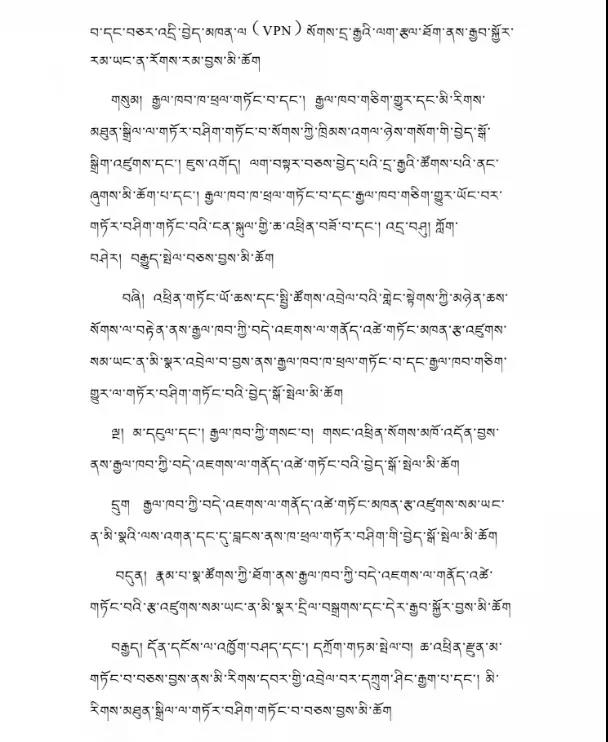 བ་དང་བཅར་འདྲི་བྱེད་མཁན་ལ（VPN）སོགས་དྲ་རྒྱའི་ལག་རྩལ་ཐོག་ནས་རྒྱབ་སྐྱོར་
རམ་ཡང་ན་རོགས་རམ་བྱས་མི་ཆོག
གསུམ། རྒྱལ་ཁབ་ཁ་ཕྲལ་གཏོང་བ་དང་། རྒྱལ་ཁབ་གཅིག་གྱུར་དང་མི་རིགས་
མཐུན་སྒྲིལ་ལ་གཏོར་བཤིག་གཏོང་བ་སོགས་ཀྱི་ཁྲིམས་འགལ་ཉེས་གསོག་གི་བྱེད་སྒོ་
སྒྲིག་འཛུགས་དང་། ཇུས་འགོད། ལག་བསྟར་བཅས་བྱེད་པའི་དྲ་རྒྱའི་ཚོགས་པའི་ནང་
ཞུགས་མི་ཆོག་པ་དང་། རྒྱལ་ཁབ་ཁ་ཕྲལ་གཏོང་བ་དང་རྒྱལ་ཁབ་གཅིག་གྱུར་ཡོང་བར་
གཏོར་བཤིག་གཏོང་བའི་ངན་སྐུལ་གྱི་ཆ་འཕྲིན་བཟོ་བ་དང་། འདྲ་བཤུ། ཀློག་
བཤེར། བརྒྱུད་སྤེལ་བཅས་བྱས་མི་ཆོག
བཞི། འཕྲིན་གཏོང་ཡོ་ཆས་དང་སྤྱི་ཚོགས་འབྲེལ་བའི་གླེང་སྟེགས་ཀྱི་མཉེན་ཆས་
སོགས་ལ་བརྟེན་ནས་རྒྱལ་ཁབ་ཀྱི་བདེ་འཇགས་ལ་གནོད་འཚེ་གཏོང་མཁན་རྩ་འཛུགས་
སམ་ཡང་ན་མི་སྣར་འབྲེལ་བ་བྱས་ནས་རྒྱལ་ཁབ་ཁ་ཕྲལ་གཏོང་བ་དང་རྒྱལ་ཁབ་གཅིག་
གྱུར་ལ་གཏོར་བཤིག་གཏོང་བའི་བྱེད་སྒོ་སྤེལ་མི་ཆོག
ལྔ། མ་དངུལ་དང་། རྒྱལ་ཁབ་ཀྱི་གསང་བ། གསང་འཕྲིན་སོགས་མཁོ་འདོན་བྱས་
ནས་རྒྱལ་ཁབ་ཀྱི་བདེ་འཇགས་ལ་གནོད་འཚེ་གཏོང་བའི་བྱེད་སྒོ་སྤེལ་མི་ཆོག
དྲུག རྒྱལ་ཁབ་ཀྱི་བདེ་འཇགས་ལ་གནོད་འཚེ་གཏོང་མཁན་རྩ་འཛུགས་སམ་ཡང་
ན་མི་སྣའི་ལས་འགན་དང་དུ་བླངས་ནས་ཁ་ཕྲལ་གཏོར་བཤིག་གི་བྱེད་སྒོ་སྤེལ་མི་ཆོག
བདུན། རྣམ་པ་སྣ་ཚོགས་ཀྱི་ཐོག་ནས་རྒྱལ་ཁབ་ཀྱི་བདེ་འཇགས་ལ་གནོད་འཚེ་
གཏོང་བའི་རྩ་འཛུགས་སམ་ཡང་ན་མི་སྣར་དྲིལ་བསྒྲགས་དང་དེར་རྒྱབ་སྐྱོར་བྱས་མི་ཆོག
བརྒྱད། དོན་དངོས་ལ་འཁྱོག་བཤད་དང་། དཀྲོག་གཏམ་སྤེལ་བ། ཆ་འཕྲིན་རྫུན་མ་
གཏོང་བ་བཅས་བྱས་ནས་མི་རིགས་དབར་གྱི་འབྲེལ་བར་དཀྲུག་ཤིང་རྒྱག་པ་དང་། མི་
རིགས་མཐུན་སྒྲིལ་ལ་གཏོར་བཤིག་གཏོང་བ་བཅས་བྱས་མི་ཆོག